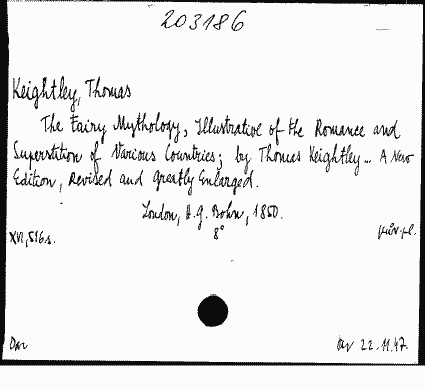 203186
Keightley, Thomas
The Fairy Mythology, Illustrative of the Romance and
Superstition of Various Countries; by Thomas Keightley... A New
Edition, Revised and greatly Enlarged.
London, H.G. Bohn, 1850.
XVI, 516 s. 8°
Dar
22.11.47.